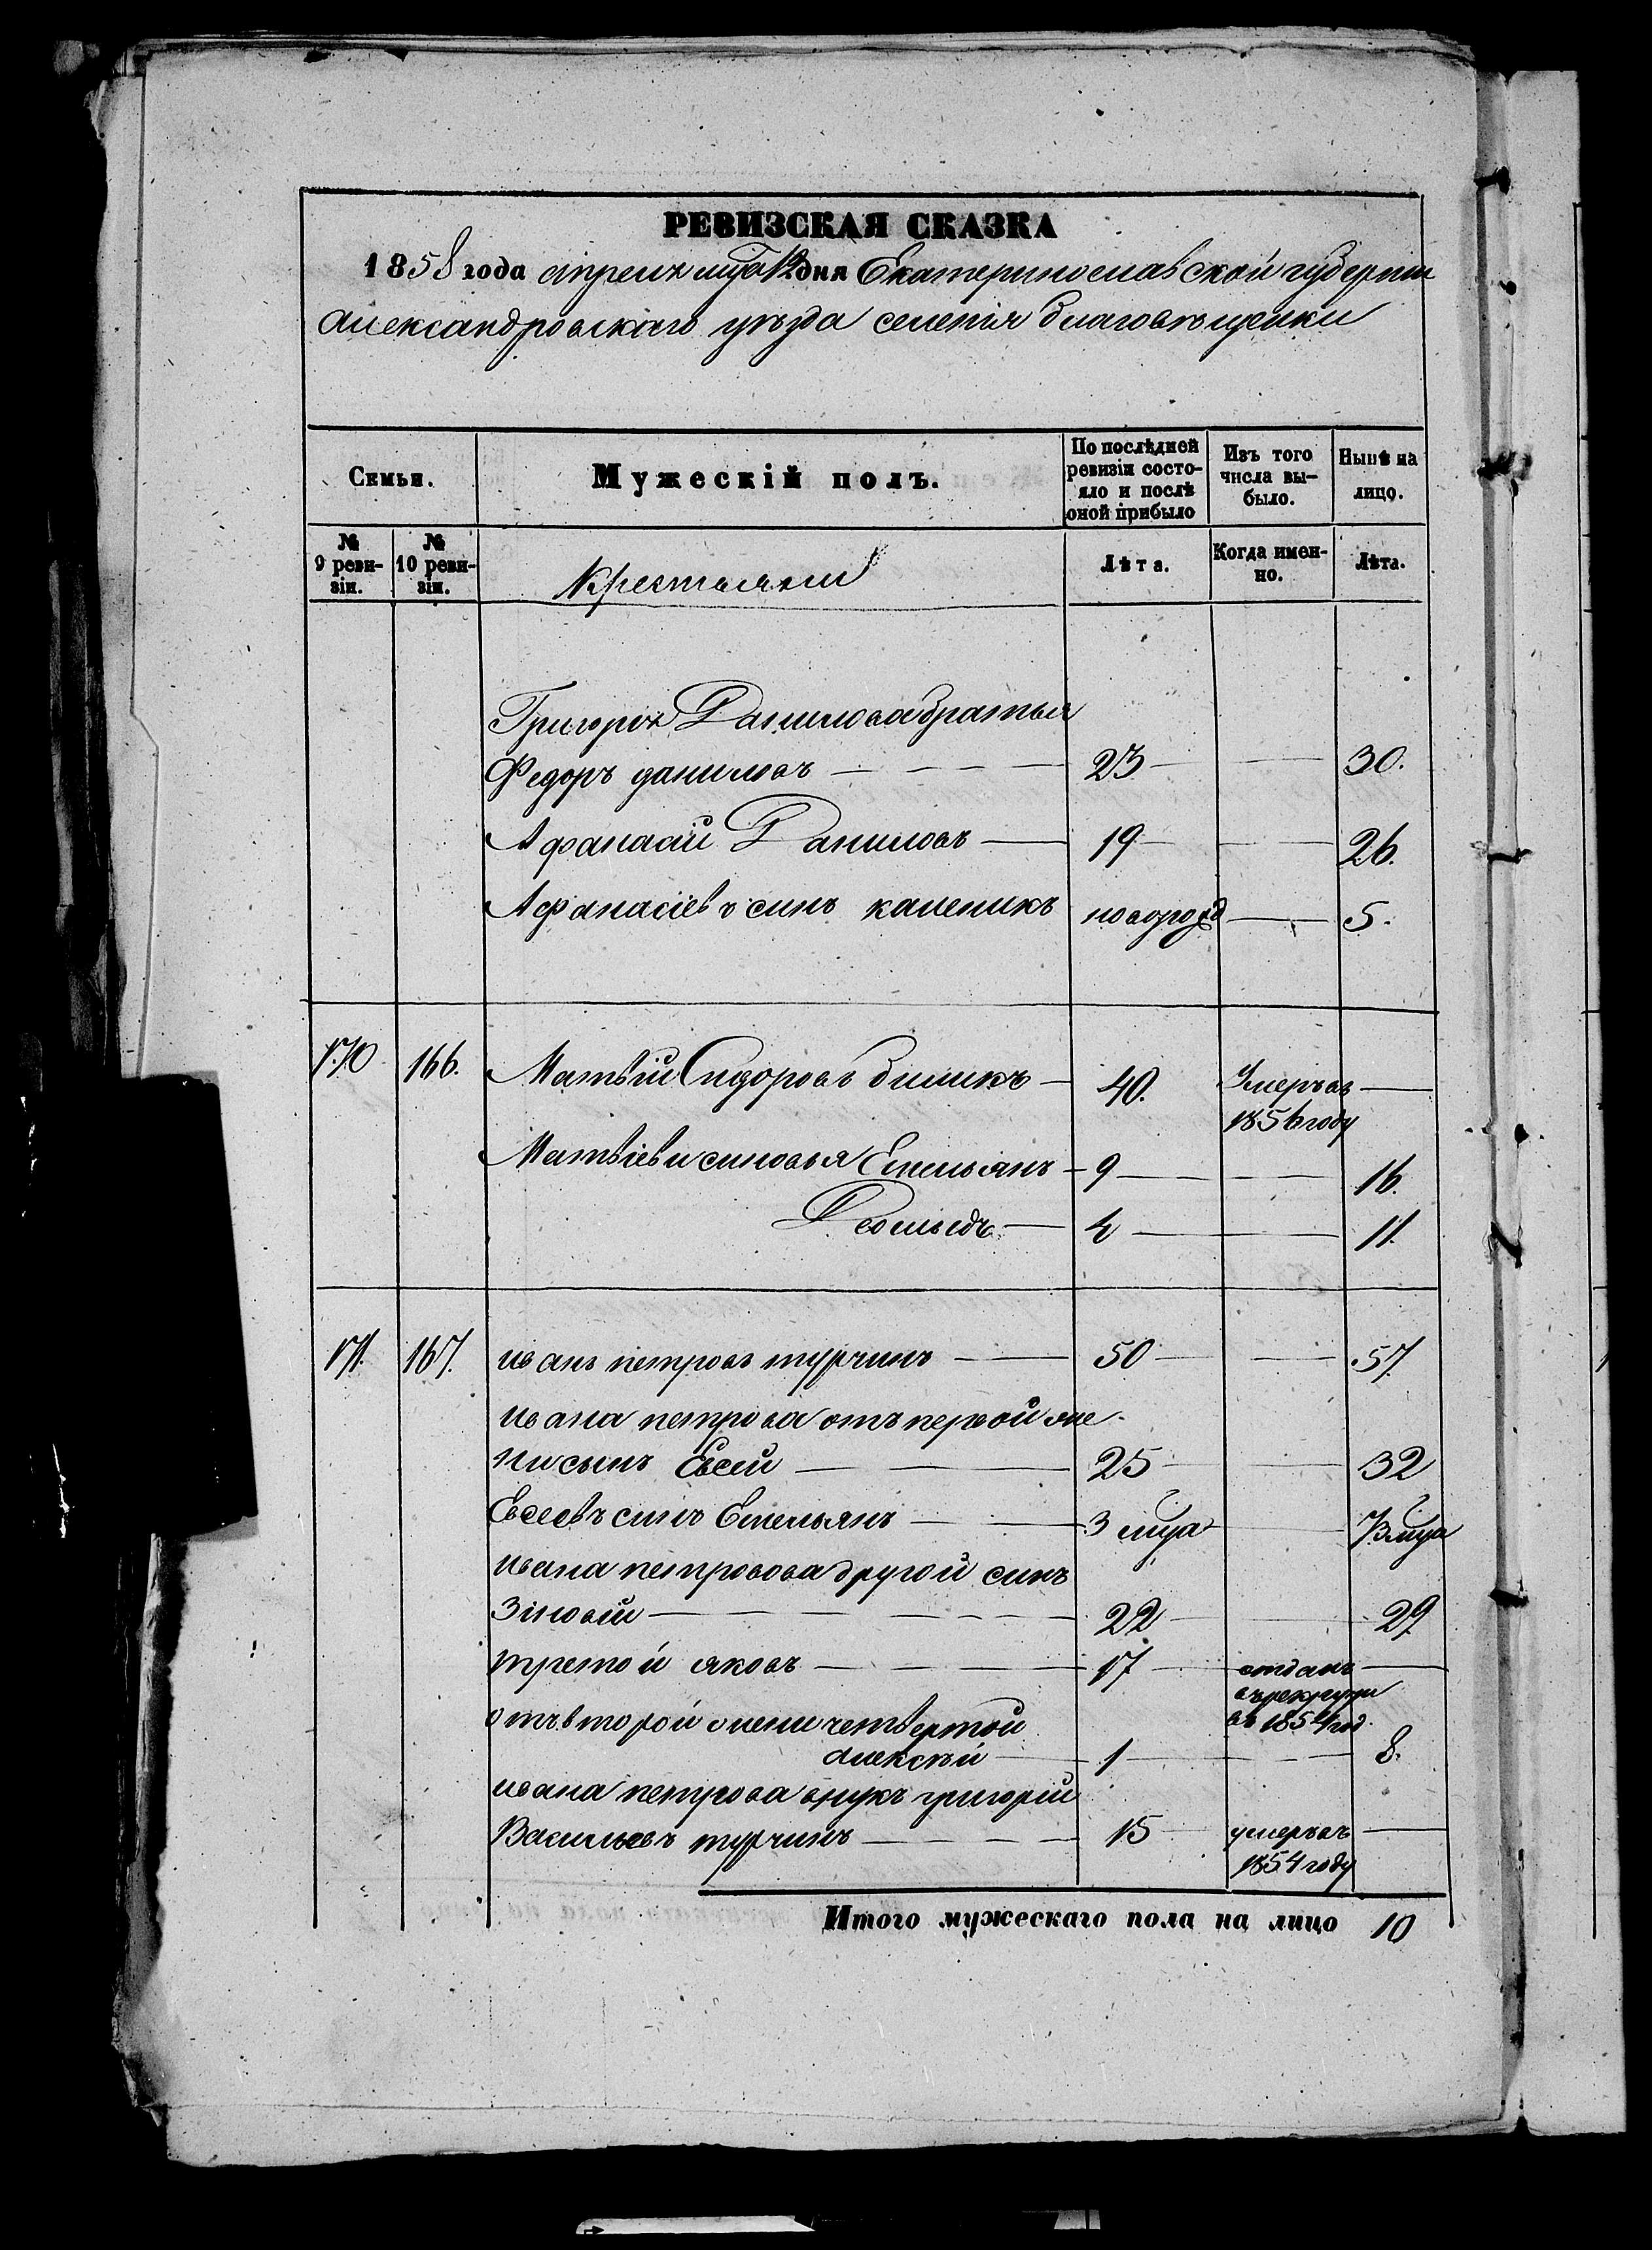 РЕВИЗСКАЯ СКАЗКА
1858 года апреля мца 12 дня Екатеринославской губернии
Александровскаго уѣзда селенія благовѣщенки
Семьи.
Мужескій полъ.
По послѣдней ревизіи состо-
яло и послѣ оной прибыло
Изъ того числа вы-
было.
Нынѣ на лицо.
№ 9 реви-
зіи.
№ 10 реви-
зіи.
Крестьяни
Лѣта.
Когда имен-
но.
Лѣта.
Григорія Данилова братья
Федоръ даниловъ — 23 — 30.
Афанасій Даниловъ — 19 — 26.
Афанасіевъ синъ каленикъ новорожд — 5.
170 166. Матвій Сидоровъ биликъ — 40. Умеръ въ —
1856 году
Матвіеви синовья Емельянъ — 9 — 16.
Демыдъ — 4 — 11.
171. 167. иванъ петровъ турчинъ — 50 — 57.
ивана петрова отъ первой же-
ни сынъ Евсей — 25 — 32
Евсеевъ синъ Емельянъ — 3 мца — 7 3 мца
ивана петровова другой синъ
Зіновій — 22 — 29
третой яковъ — 17 — отданъ —
въ рекрути
въ 1854 год.
отъ второй жени четвертой
алексѣй — 1 — 8.
ивана петрова внукъ григорій
Васильевъ турчинъ — 15 умеръ въ —
1854 году
Итого мужескаго пола на лицо 10